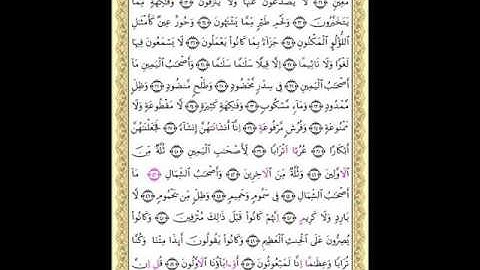 مَّعِينٍ ﴿١٨﴾ لَّا يُصَدَّعُونَ عَنْهَا وَلَا يُنزِفُونَ ﴿١٩﴾ وَفَٰكِهَةٍ مِّمَّا
يَتَخَيَّرُونَ ﴿٢٠﴾ وَلَحْمِ طَيْرٍ مِّمَّا يَشْتَهُونَ ﴿٢١﴾ وَحُورٌ عِينٌ ﴿٢٢﴾ كَأَمْثَٰلِ
ٱللُّؤْلُؤِ ٱلْمَكْنُونِ ﴿٢٣﴾ جَزَآءًۢ بِمَا كَانُوا۟ يَعْمَلُونَ ﴿٢٤﴾ لَا يَسْمَعُونَ فِيهَا
لَغْوًا وَلَا تَأْثِيمًا ﴿٢٥﴾ إِلَّا قِيلًا سَلَٰمًا سَلَٰمًا ﴿٢٦﴾ وَأَصْحَٰبُ ٱلْيَمِينِ مَآ
أَصْحَٰبُ ٱلْيَمِينِ ﴿٢٧﴾ فِى سِدْرٍ مَّخْضُودٍ ﴿٢٨﴾ وَطَلْحٍ مَّنضُودٍ ﴿٢٩﴾ وَظِلٍّ
مَّمْدُودٍ ﴿٣٠﴾ وَمَآءٍ مَّسْكُوبٍ ﴿٣١﴾ وَفَٰكِهَةٍ كَثِيرَةٍ ﴿٣٢﴾ لَّا مَقْطُوعَةٍ وَلَا
مَمْنُوعَةٍ ﴿٣٣﴾ وَفُرُشٍ مَّرْفُوعَةٍ ﴿٣٤﴾ إِنَّآ أَنشَأْنَٰهُنَّ إِنشَآءً ﴿٣٥﴾ فَجَعَلْنَٰهُنَّ
أَبْكَارًا ﴿٣٦﴾ عُرُبًا أَتْرَابًا ﴿٣٧﴾ لِّأَصْحَٰبِ ٱلْيَمِينِ ﴿٣٨﴾ ثُلَّةٌ مِّنَ
ٱلْأَوَّلِينَ ﴿٣٩﴾ وَثُلَّةٌ مِّنَ ٱلْءَاخِرِينَ ﴿٤٠﴾ وَأَصْحَٰبُ ٱلشِّمَالِ ﴿٤١﴾ مَآ
أَصْحَٰبُ ٱلشِّمَالِ ﴿٤١﴾ فِى سَمُومٍ وَحَمِيمٍ ﴿٤٢﴾ وَظِلٍّ مِّن يَحْمُومٍ ﴿٤٣﴾ لَّا
بَارِدٍ وَلَا كَرِيمٍ ﴿٤٤﴾ إِنَّهُمْ كَانُوا۟ قَبْلَ ذَٰلِكَ مُتْرَفِينَ ﴿٤٥﴾ وَكَانُوا۟
يُصِرُّونَ عَلَى ٱلْحِنثِ ٱلْعَظِيمِ ﴿٤٦﴾ وَكَانُوا۟ يَقُولُونَ أَئِذَا مِتْنَا وَكُنَّا
تُرَابًا وَعِظَٰمًا إِنَّا لَمَبْعُوثُونَ ﴿٤٧﴾ أَوَءَابَآؤُنَا ٱلْأَوَّلُونَ ﴿٤٨﴾ قُلْ إِنَّ